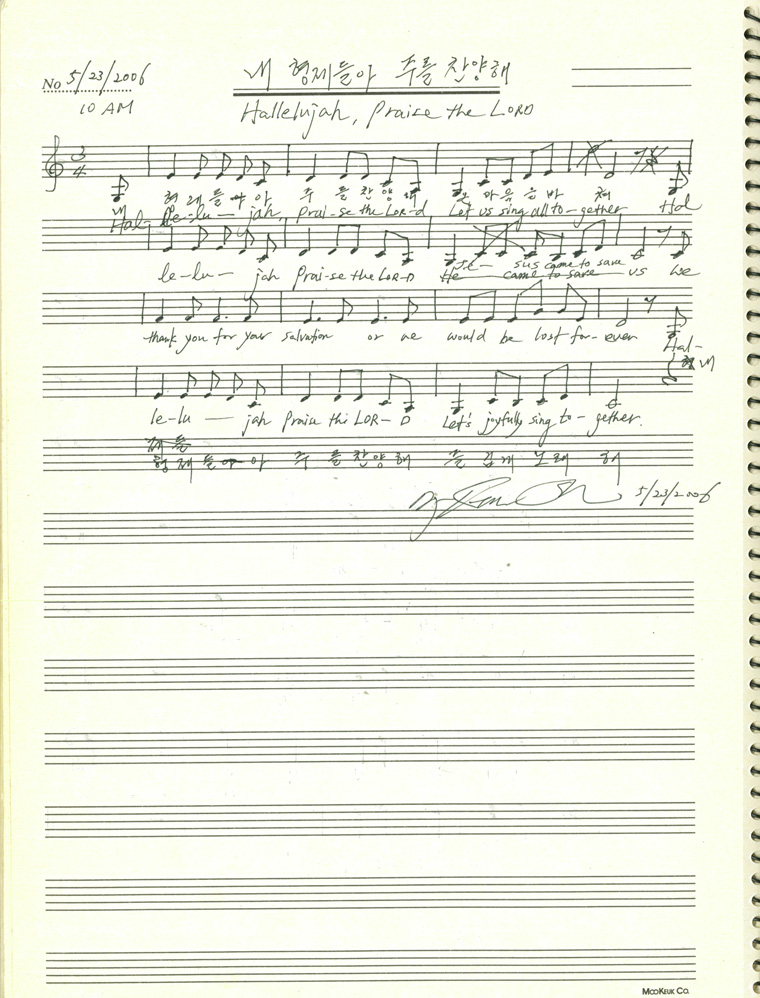 No 5/23/2006
10 AM
내 형제들아 주를 찬양해
Hallelujah, Praise the LORD
3/4
내 형제들아아 주를찬양해 마음을바쳐
Hal- le-lu- jah, Prai-se the LOR-d Let us sing all to-gether Hal
le-lu- jah Prai-se the LOR-D He came to save us We
Je- sus came to save
thank you for your salvation or we would be lost for-ever Hal-
내
le-lu — jah Praise the LOR-D Let's joyfully sing to-gether.
형제들아아 주를찬양해 즐겁게노래해
5/23/2006
MOOKEUK CO.